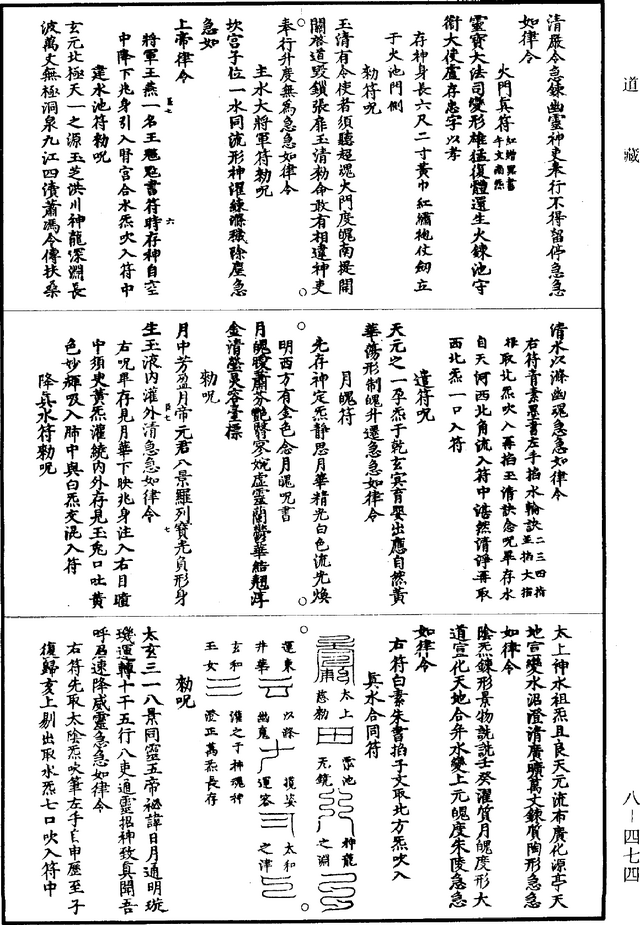 道藏
清嚴令急錬幽靈神吏奉行不得留停急急
如律令
火門真符
靈寶大法司變形雄猛復體還生火錬池守
衛大使盧存忠字以孝
存神身長六尺二寸黃巾紅繡袍仗劒立
于火池門側
勑符呪
玉清有令使者須聽超魂火門度魄南提開
關啓道毀鎖張扉玉清勑命敢有相違神吏
奉行升度無為急急如律令
主水大將軍符勑呪
坎宫子位一水同流形神濯練滌穢除塵急
急如
上帝律令
將軍王燕一名王𩲃𩲃書符時存神自空
中降下兆身引入腎宫合水炁吹入符中
建水池符勑呪
玄元北極天一之源玉芝洪川神龍深淵長
波萬丈無極洞泉九江四瀆蕭馮令傳扶桑
清水以滌幽魂急急如律令
右符青素墨書左手掐水輪訣二三四指並掐大指
存取北炁吹入再掐玉清訣念呪畢存水
自天河西北角流入符中湛然清淨再取
西北炁一口入符
遣符呪
天元之一孕炁子乾玄冥育嬰出應自然黃
華蕩形制魄升遷急急如律令
月魄符
先存神定炁靜思月華精光白色流光煥
明西方有金色念月魄呪書
月魄曖蕭芬艷翳寥婉虛靈蘭鬱華結翹淳
金清瑩炅容臺標
勑呪
月中芳盈月帝元君八景羅列寶光負形身
生玉液内灌外清急急如律令
右呪畢存見月華下映兆身注入右目瞳
中須臾黃炁灌繞内外存見玉兎口吐黃
色妙輝吸入肺中與白炁交混入符
降真水符勑呪
太上神水祖炁且良天元流布廣化源亭天
地宫變水沼澄清廣曠萬丈錬質陶形急急
如律令
陰炁錬形景物詵詵壬癸濯質月魄度形大
道宣化天地合并水變上元魄度朱陵急急
如律令
右符白素朱書掐子文取北方炁吹入
真水合同符
太上 雲池 神龍
慈勑 无鏡 之淵
運東 以滌 摸姿 太和
井華 幽鬼 運容 之津
玄和 灌之千神魂神
玉女 澄正萬炁長存
勑呪
太玄三一八景同靈五帝祕諱日月通明璇
璣運轉十干五行八吏通靈招神致真開吾
呼召速降威靈急急如律令
右符先取太陰炁吹筆左手自申歷至子
復歸亥上剔出取水炁七口吹入符中
八－四七四